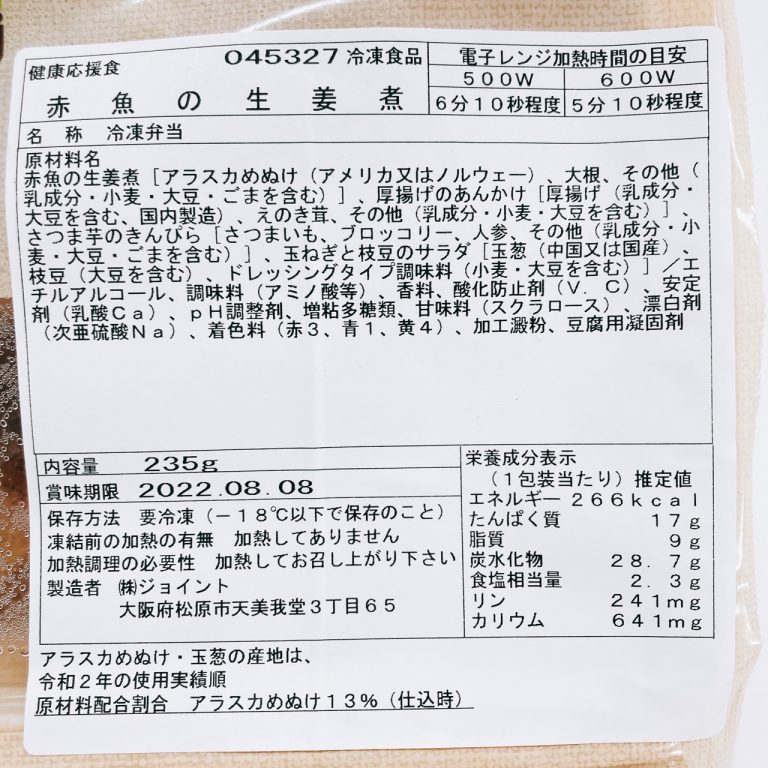 健康応援食
045327 冷凍食品
赤魚の生姜煮
電子レンジ加熱時間の目安
500W 600W
6分10秒程度 5分10秒程度
名 称 冷凍弁当
原材料名
赤魚の生姜煮[アラスカめぬけ(アメリカ又はノルウェー)、大根、その他(
乳成分・小麦・大豆・ごまを含む)]、厚揚げのあんかけ[厚揚げ(乳成分・
大豆を含む、国内製造)、えのき茸、その他(乳成分・小麦・大豆を含む)]、
さつま芋のきんぴら[さつまいも、ブロッコリー、人参、その他(乳成分・小
麦・大豆・ごまを含む)]、玉ねぎと枝豆のサラダ[玉葱(中国又は国産)、
枝豆(大豆を含む)、ドレッシングタイプ調味料(小麦・大豆を含む)]/エ
チルアルコール、調味料(アミノ酸等)、香料、酸化防止剤(V.C)、安定
剤(乳酸Ca)、pH調整剤、増粘多糖類、甘味料(スクラロース)、漂白剤
(次亜硫酸Na)、着色料(赤3、青1、黄4)、加工澱粉、豆腐用凝固剤
内容量 235g
賞味期限 2022.08.08
保存方法 要冷凍(-18℃以下で保存のこと)
凍結前の加熱の有無 加熱してありません
加熱調理の必要性 加熱してお召し上がり下さい
製造者 ㈱ジョイント
大阪府松原市天美我堂3丁目65
栄養成分表示
(1包装当たり)推定値
エネルギー 266kcal
たんぱく質 17g
脂質 9g
炭水化物 28.7g
食塩相当量 2.3g
リン 241mg
カリウム 641mg
アラスカめぬけ・玉葱の産地は、
令和2年の使用実績順
原材料配合割合 アラスカめぬけ13%(仕込時)